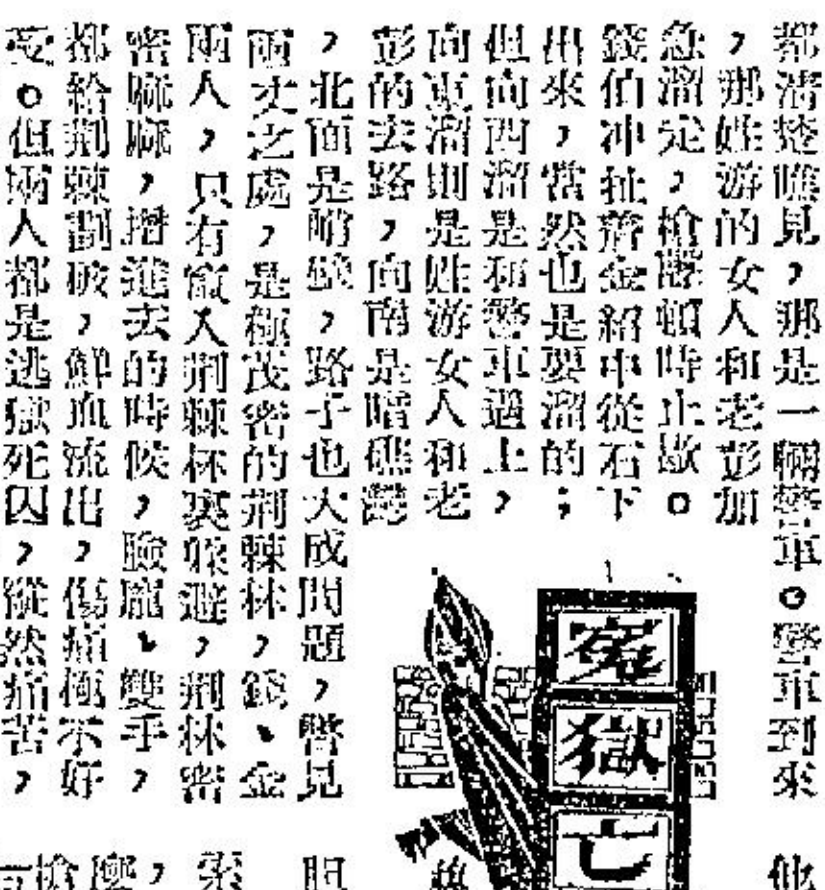 都清楚瞧見,那是一輛警車。警車到來
,那姓游的女人和老彭加
急溜走,槍聲頓時止歇。
錢伯冲扯着金紹申從石下
出來,當然也是要溜的;
但向西溜是和警車遇上,
向東溜則是姓游女人和老
彭的去路,向南是暗礁懸
,北面是峭壁,路子也大成問題,瞥見
兩丈之處,是極茂密的荆棘林,錢、金
兩人,只有竄入荆棘林裏躲避,荆林密
密麻麻,進去的時候,臉龐、雙手,
都給荆棘劃破,鮮血流出,傷痛極不好
受。但兩人都是逃獄死囚,縱然痛苦,
冤獄亡